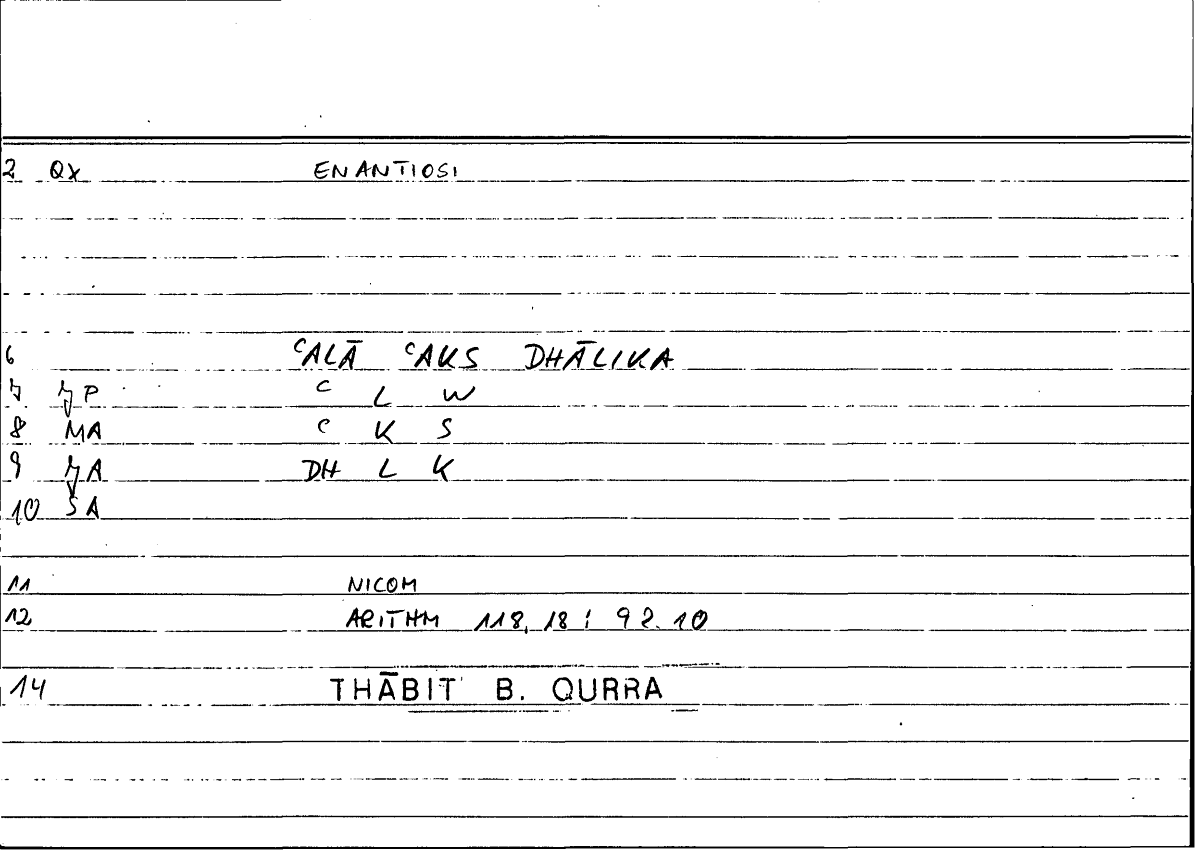 2 QX ENANTIOSI
6 ʿALĀ ʿAKS DHĀLIKA
7 P ʿ L W
8 MA ʿ K S
9 A DH L K
10 SA
11 NICOM
12 ARITHM 118, 18 : 92. 10
14 THĀBIT B. QURRA